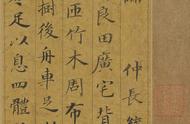 仲長統
良田廣宅背
匝竹木周布
樹後舟車足
足以息四體